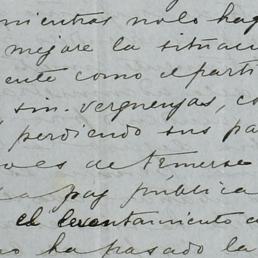 mientras no lo hag
mejore la situac
ente como el parti
sin. verguenzas, co
perdiendo sus pa
es de temerse
la paz publica
el levantamiento d
no ha pasado la